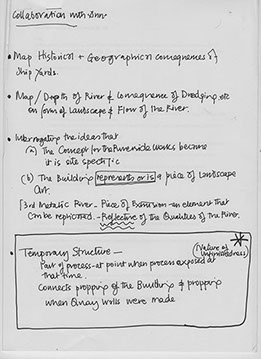 Collaboration with
• Map Historical + Geographical consequences of
Ship Yards.
• Map / Depth of River & Consequence of Dredging etc
on form of Landscape & Flow of the River.
• Interrogating the ideas that
(a) The Concept for the Riverside Works because
it is site specific
(b) The Building represents or is a piece of Landscape
Art.
[3rd Metallic River - Piece of Extrusion - an element that
can be replicated - Reflective of the Qualities of the River.
• Temporary Structure — (Nature of
Unfinishedness)
Part of process - at point when process exposed at
that time.
Connects propping of the Building & propping
when Quay walls were made